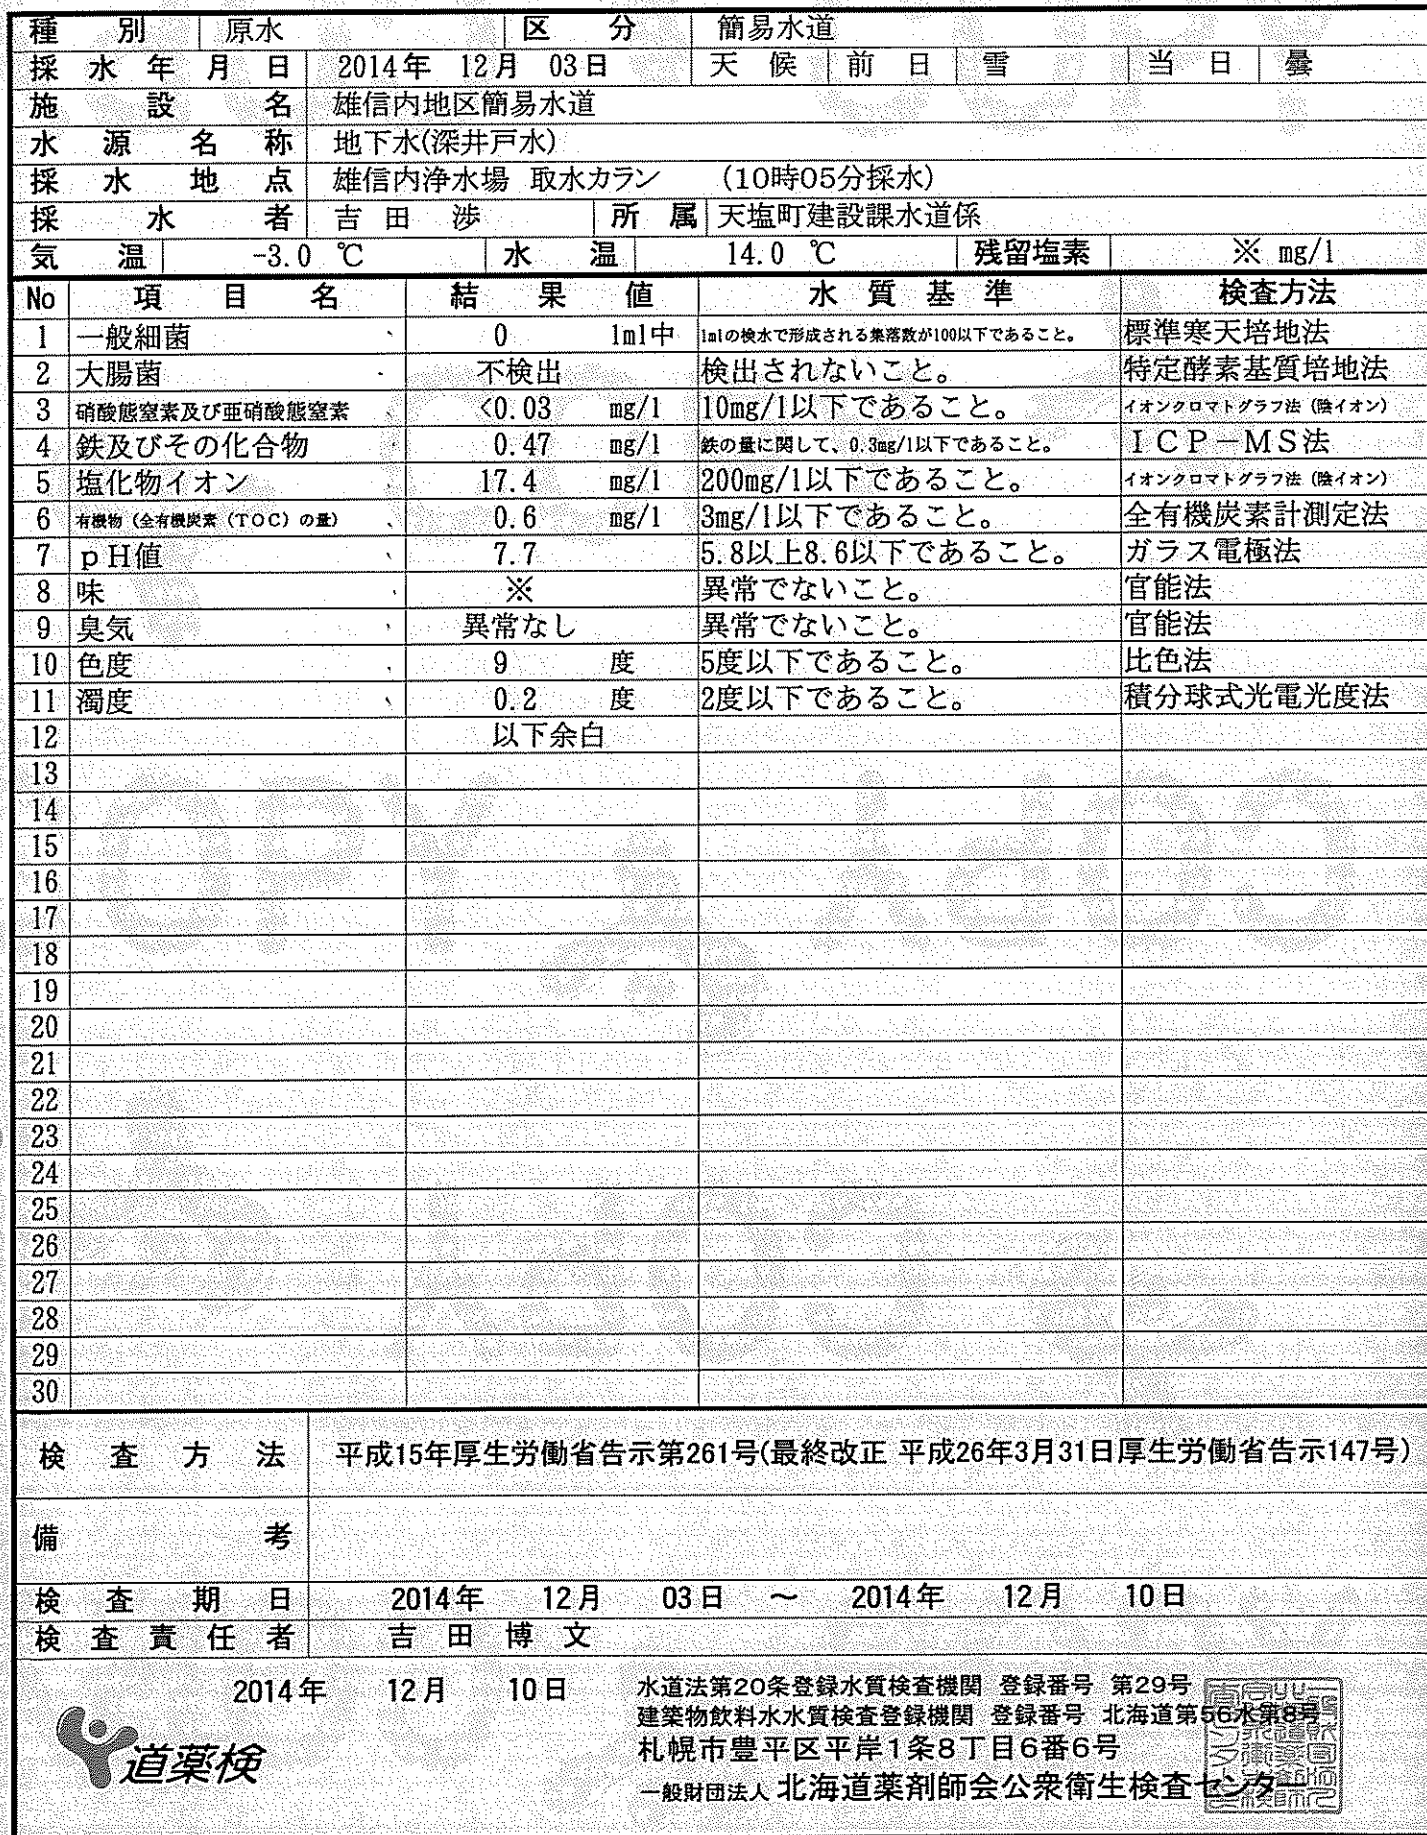 種別 原水 区分 簡易水道
採水年月日 2014年 12月 03日 天候 前日 雪 当日 曇
施設名 雄信内地区簡易水道
水源名称 地下水(深井戸水)
採水地点 雄信内浄水場 取水カラン (10時05分採水)
採水者 吉田 渉 所属 天塩町建設課水道係
気温 -3.0 ℃ 水温 14.0 ℃ 残留塩素 ※ mg/l
No 項目名 結果値 水質基準 検査方法
1 一般細菌 0 1ml中 1mlの検水で形成される集落数が100以下であること。 標準寒天培地法
2 大腸菌 不検出 検出されないこと。 特定酵素基質培地法
3 硝酸態窒素及び亜硝酸態窒素 <0.03 mg/l 10mg/l以下であること。 イオンクロマトグラフ法（陰イオン）
4 鉄及びその化合物 0.47 mg/l 鉄の量に関して、0.3mg/l以下であること。 ＩＣＰ－ＭＳ法
5 塩化物イオン 17.4 mg/l 200mg/l以下であること。 イオンクロマトグラフ法（陰イオン）
6 有機物（全有機炭素（TOC）の量） 0.6 mg/l 3mg/l以下であること。 全有機炭素計測定法
7 ｐH値 7.7 5.8以上8.6以下であること。 ガラス電極法
8 味 ※ 異常でないこと。 官能法
9 臭気 異常なし 異常でないこと。 官能法
10 色度 9 度 5度以下であること。 比色法
11 濁度 0.2 度 2度以下であること。 積分球式光電光度法
12 以下余白
13
14
15
16
17
18
19
20
21
22
23
24
25
26
27
28
29
30
検査方法 平成15年厚生労働省告示第261号(最終改正 平成26年3月31日厚生労働省告示147号)
備考
検査期日 2014年 12月 03日 ～ 2014年 12月 10日
検査責任者 吉田博文
2014年 12月 10日
水道法第20条登録水質検査機関 登録番号 第29号
建築物飲料水水質検査登録機関 登録番号 北海道第56水第8号
札幌市豊平区平岸1条8丁目6番6号
一般財団法人 北海道薬剤師会公衆衛生検査センター
道薬検